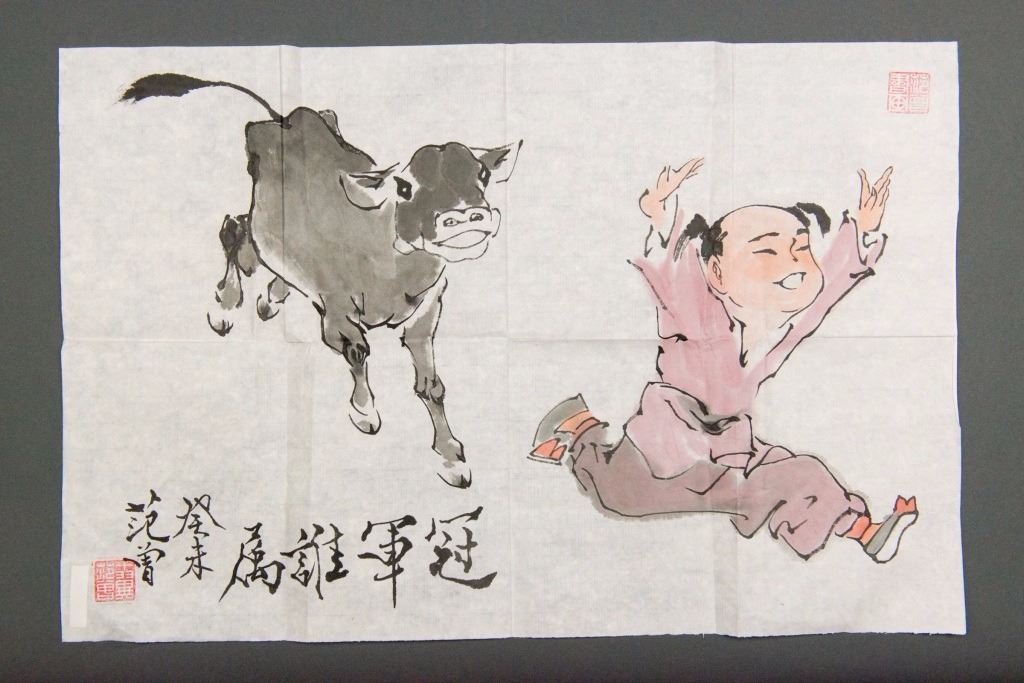 冠軍誰屬
癸未
范曾